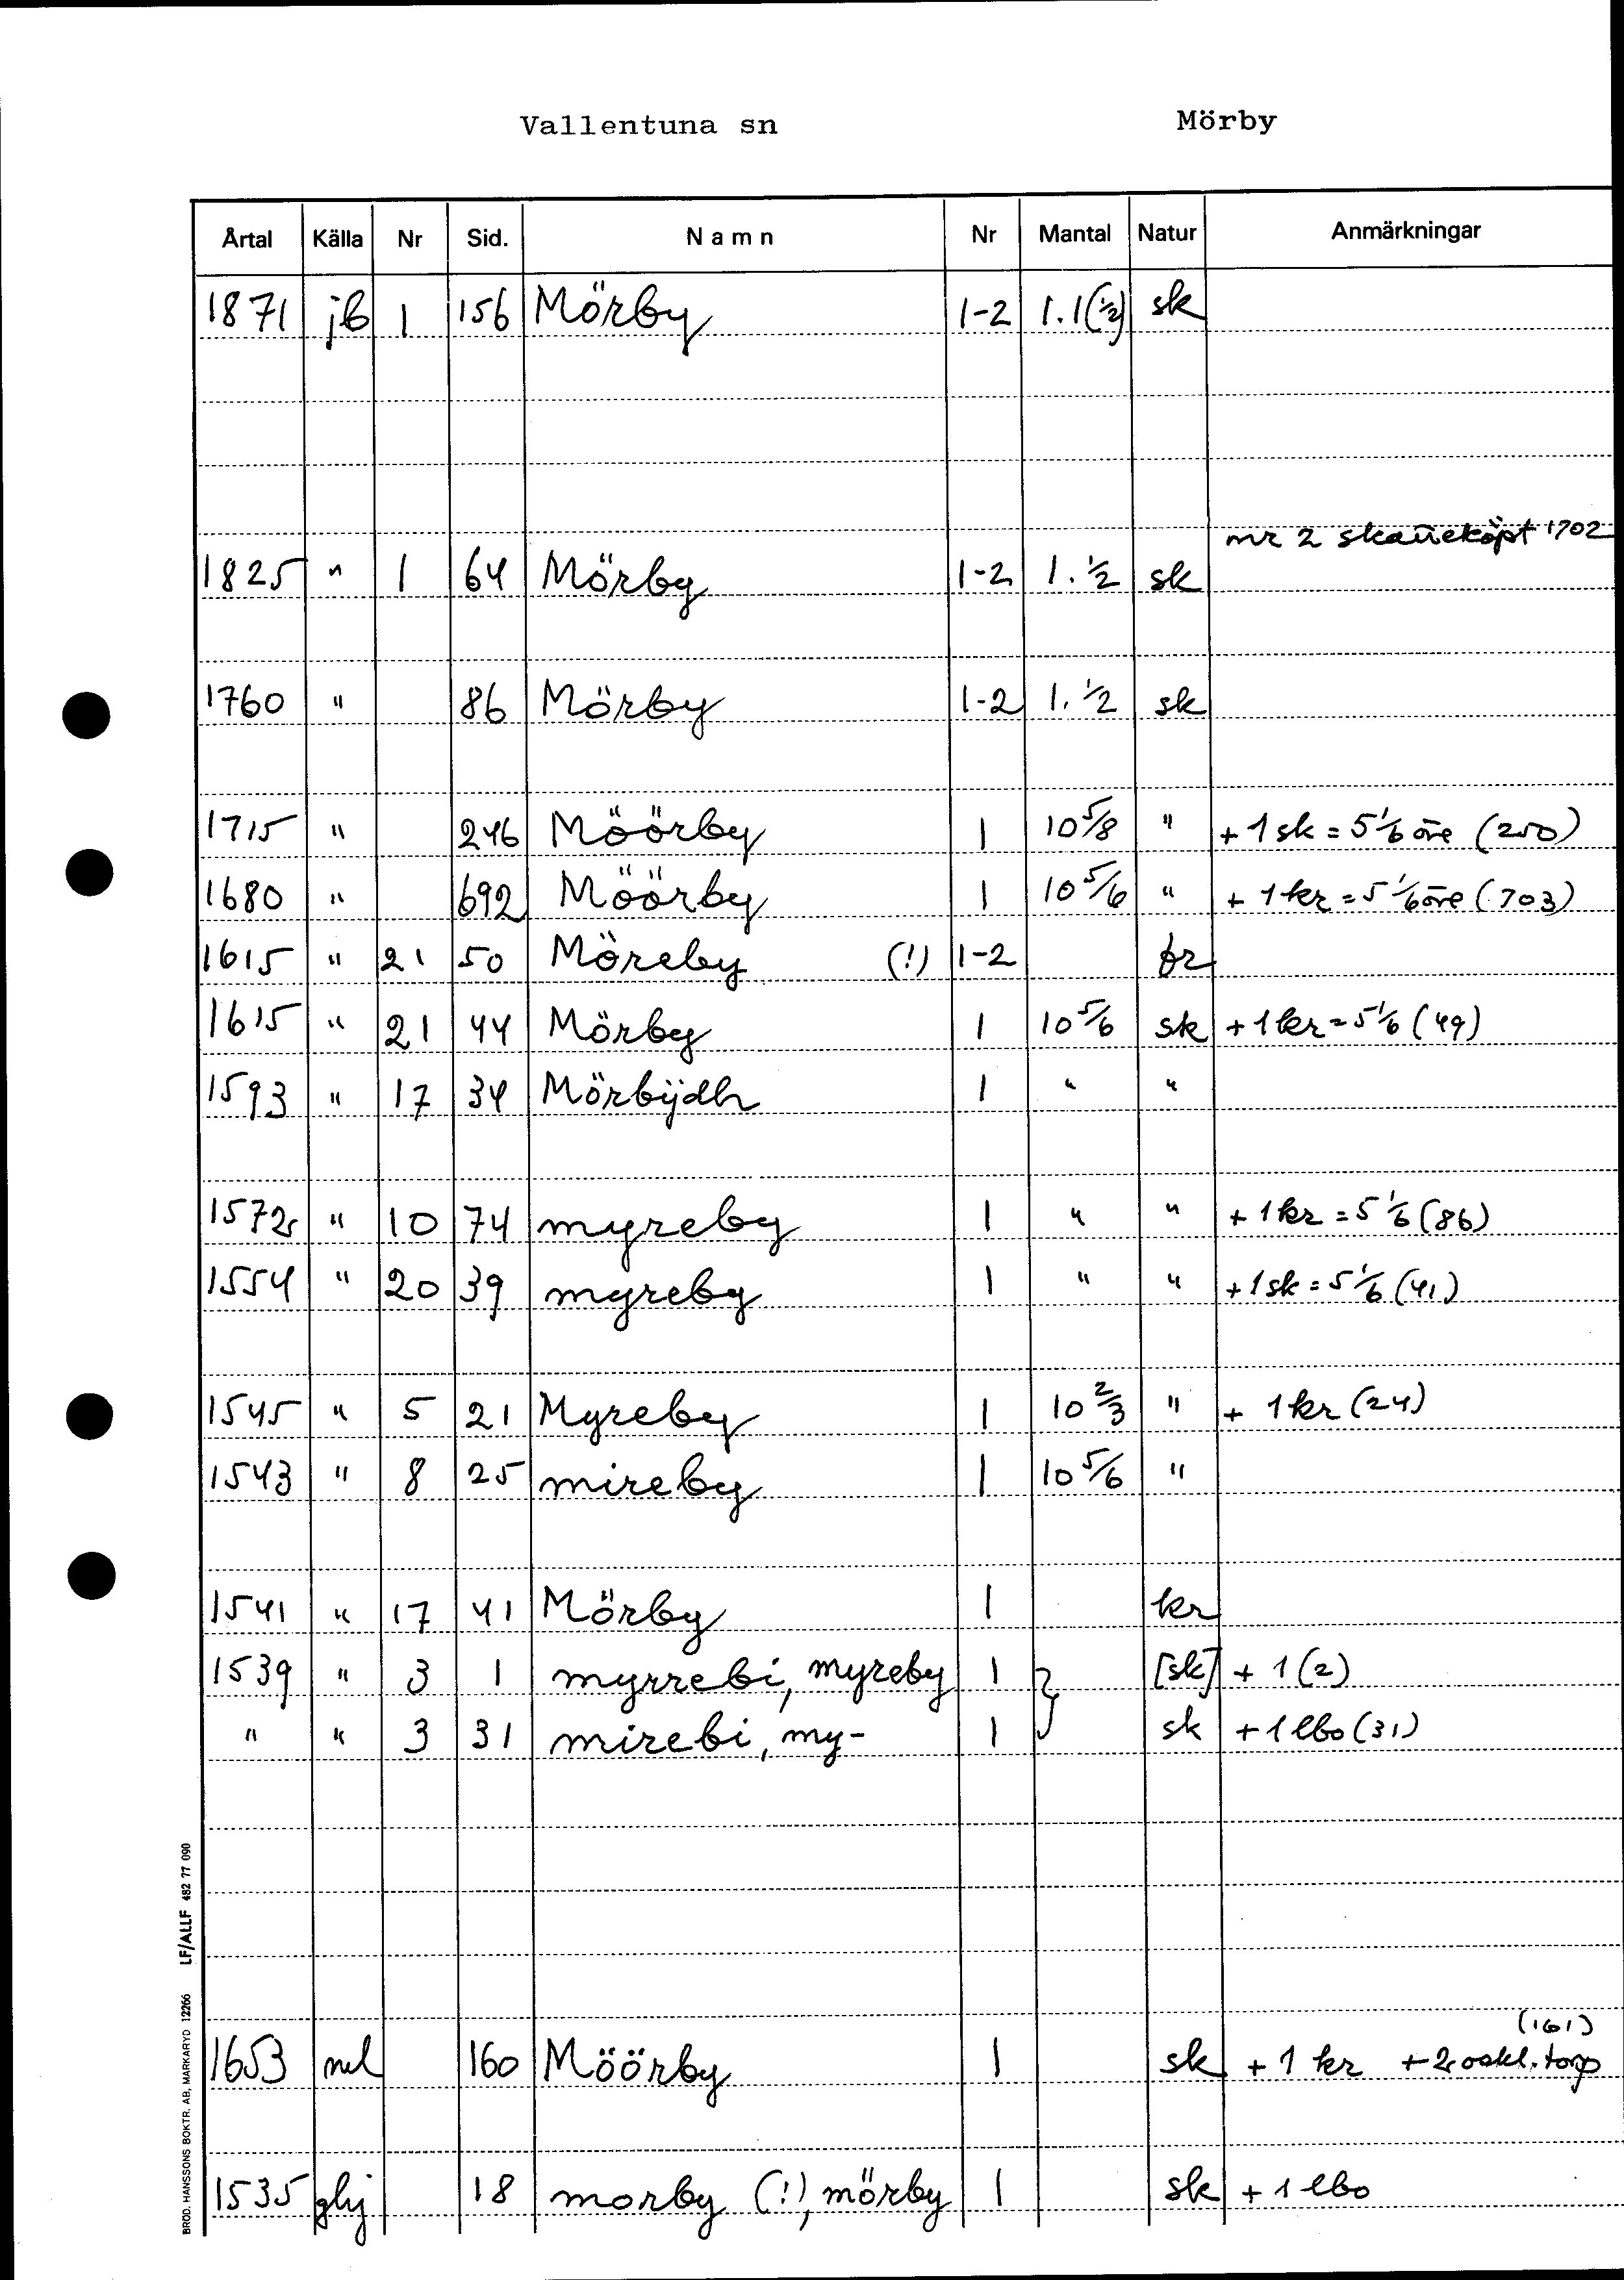 Vallentuna sn Mörby
Årtal Källa Nr Sid. Namn Nr Mantal Natur Anmärkningar
1871 jb 1 156 Mörby 1-2 1.1(½) sk
nr 2 skatteköpt 1702
1825 " 1 64 Mörby 1-2 1.½ sk
1760 " 86 Mörby 1-2 1.½ sk
1715 " 246 Möörby 1 10 5/8 " + 1 sk = 5 1/6 öre (250)
1680 " 692 Möörby 1 10 5/6 " + 1 kr = 5 1/6 öre (703)
1615 " 21 50 Möreby (!) 1-2 fr
1615 " 21 44 Mörby 1 10 5/6 sk + 1 kr = 5 1/6 (49)
1593 " 17 34 Mörbijdh 1 " "
1572 " 10 74 myreby 1 " " + 1 kr = 5 1/6 (86)
1554 " 20 39 myreby 1 " " + 1 sk = 5 1/6 (41)
1545 " 5 21 Myreby 1 10 2/3 " + 1 kr (24)
1543 " 8 25 mireby 1 10 5/6 "
1541 " 17 41 Mörby 1 kr
1539 " 3 1 myrrebi, myreby 1 } [sk] + 1 (2)
" " 3 31 mirebi, my- 1 sk + 1 lbo (31)
(161)
1653 ml 160 Möörby 1 sk + 1 kr + 2 oskl. torp
1535 glj 18 morby (!), mörby 1 sk + 1 lbo
BROD. HANSSONS BOKTR. AB, MARKARYD 12266 LF/ALLF 482 77 090